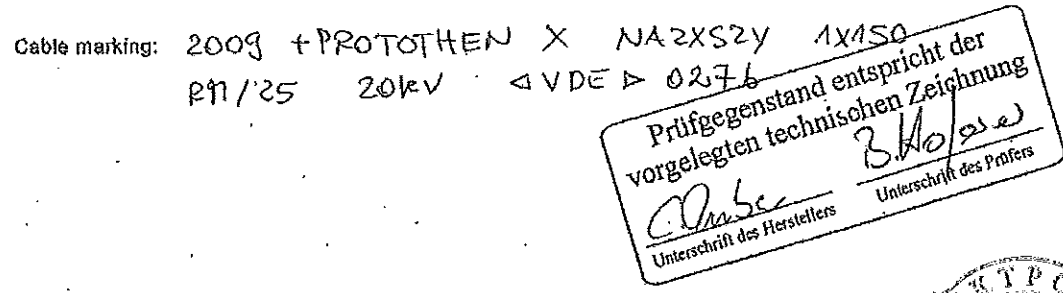 Cable marking: 2009 + PROTOTHEN X NA2XS2Y 1X150
RM/25 20kV ◁ VDE ▷ 0276
Prüfgegenstand entspricht der
vorgelegten technischen Zeichnung
Unterschrift des Herstellers
Unterschrift des Prüfers